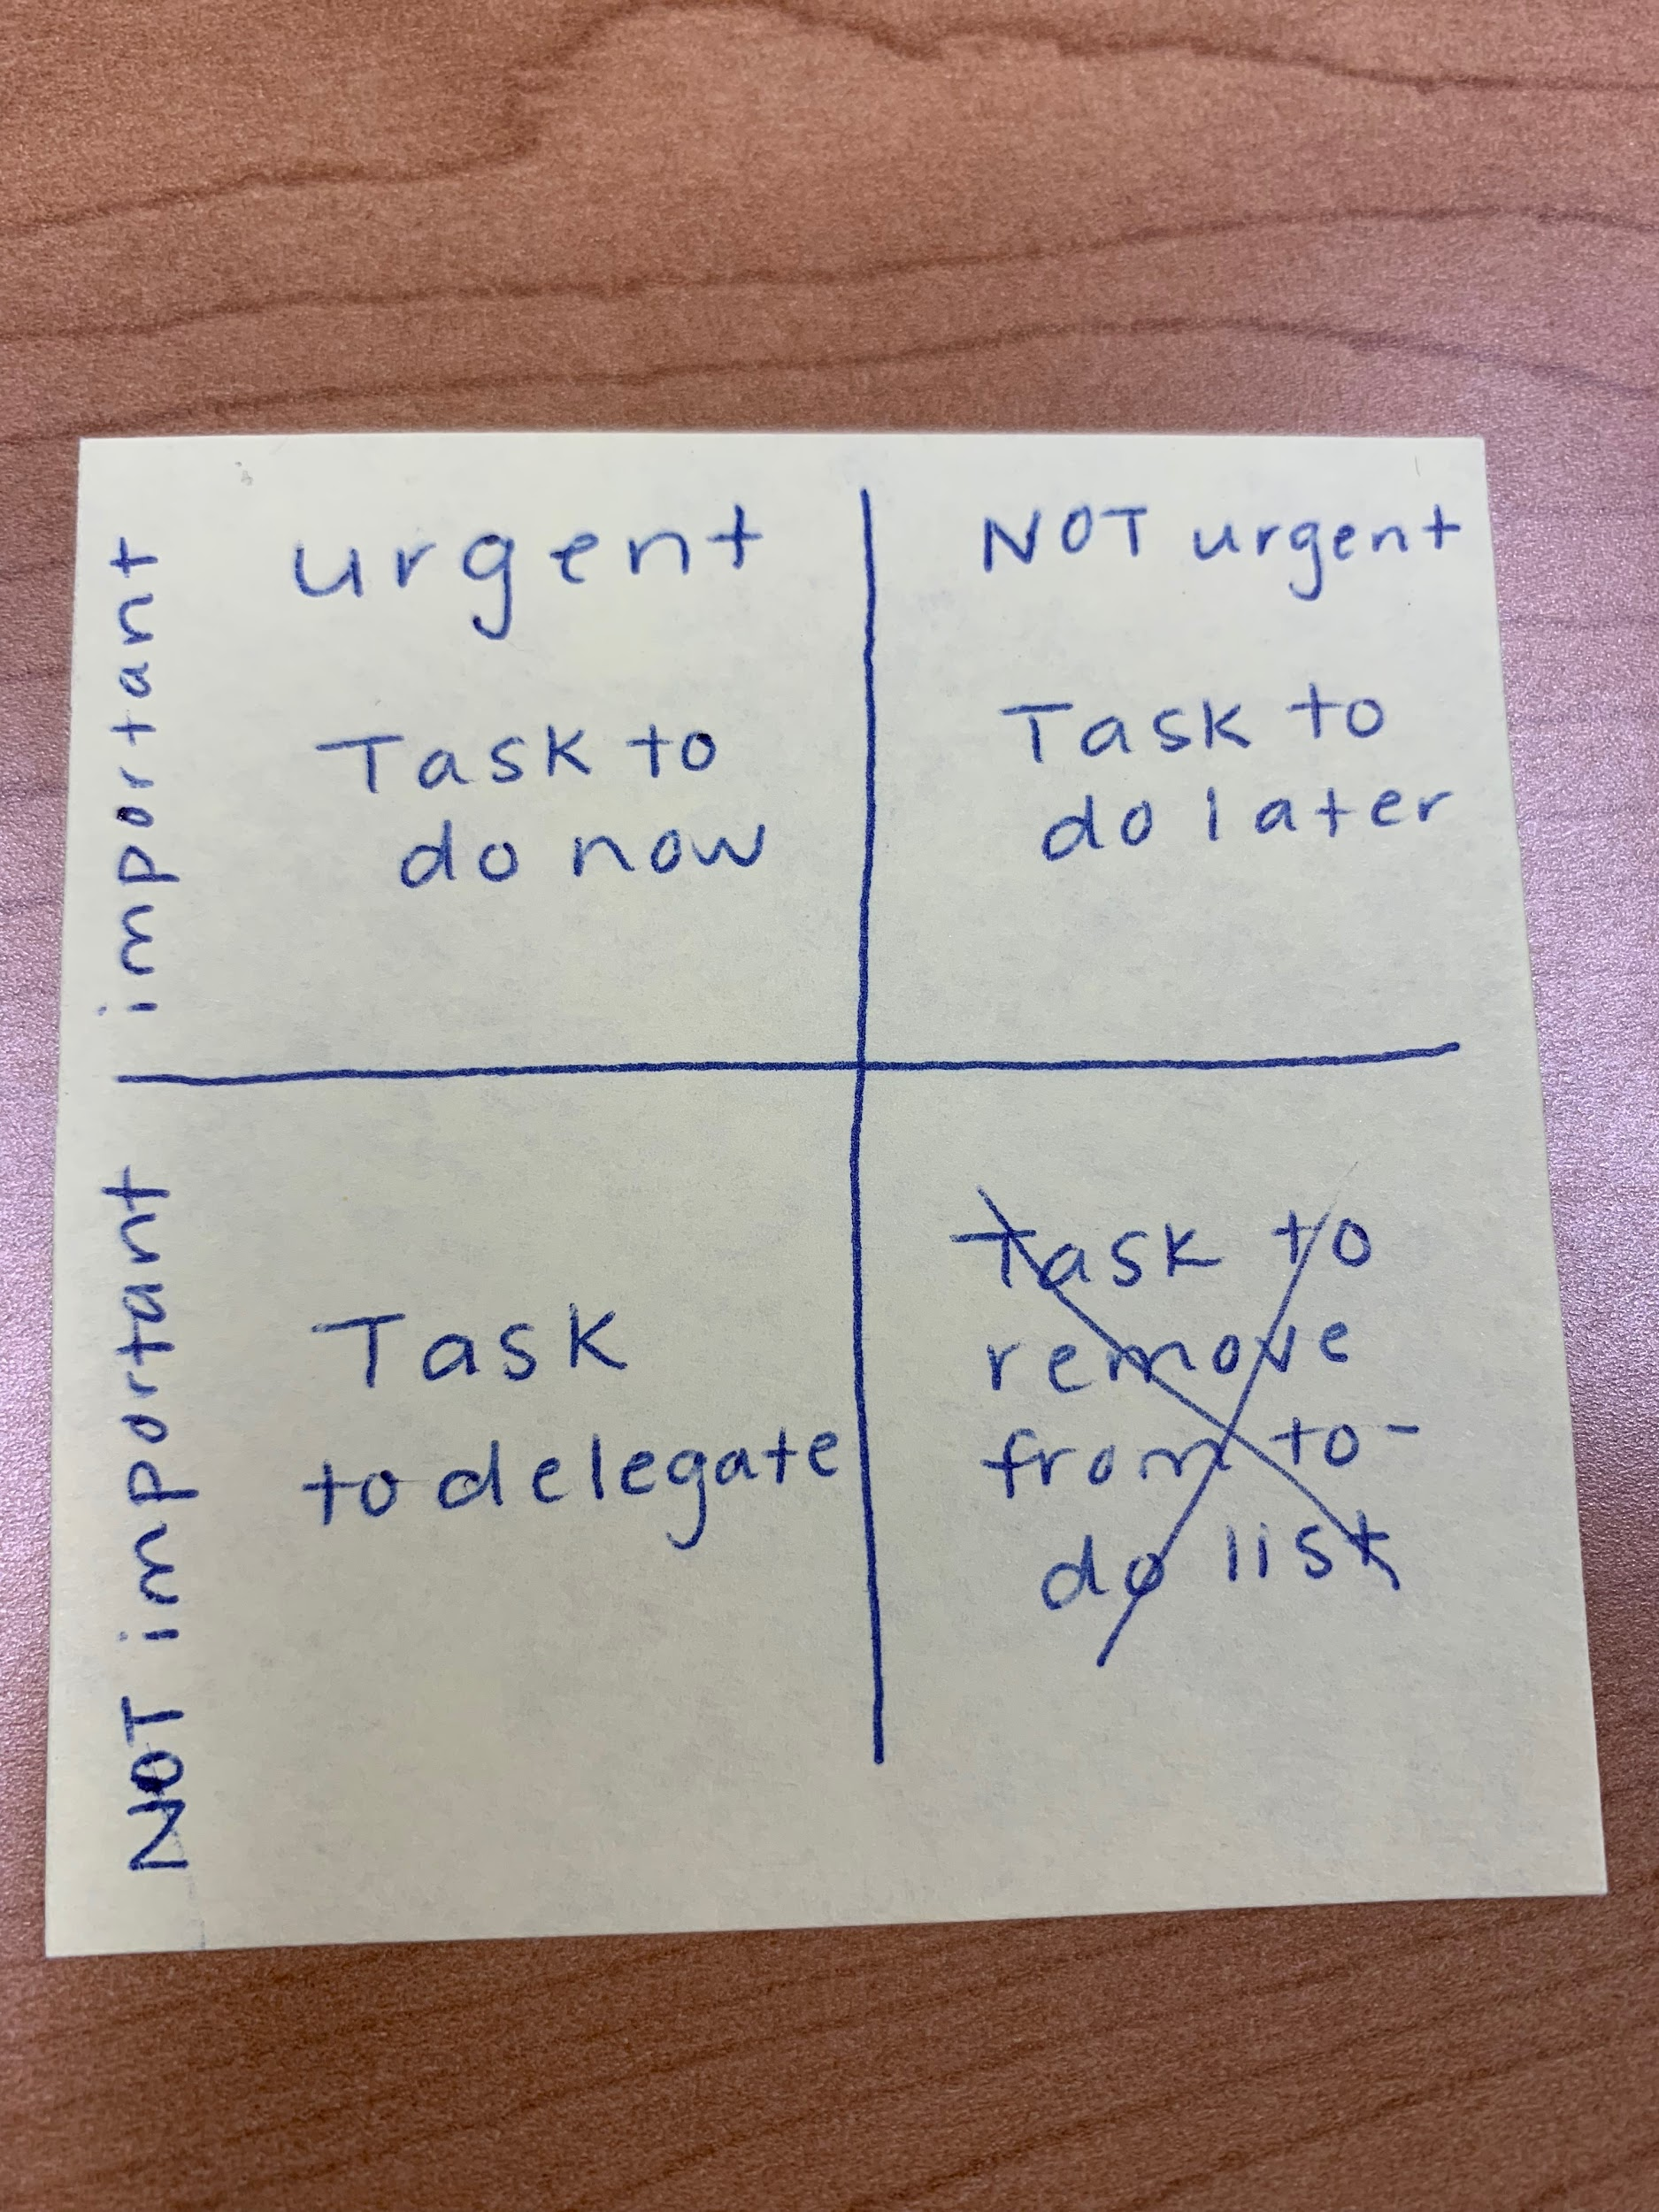 urgent
NOT urgent
important
Task to
do now
Task to
do later
NOT important
Task
to delegate
Task to
remove
from to-
do list